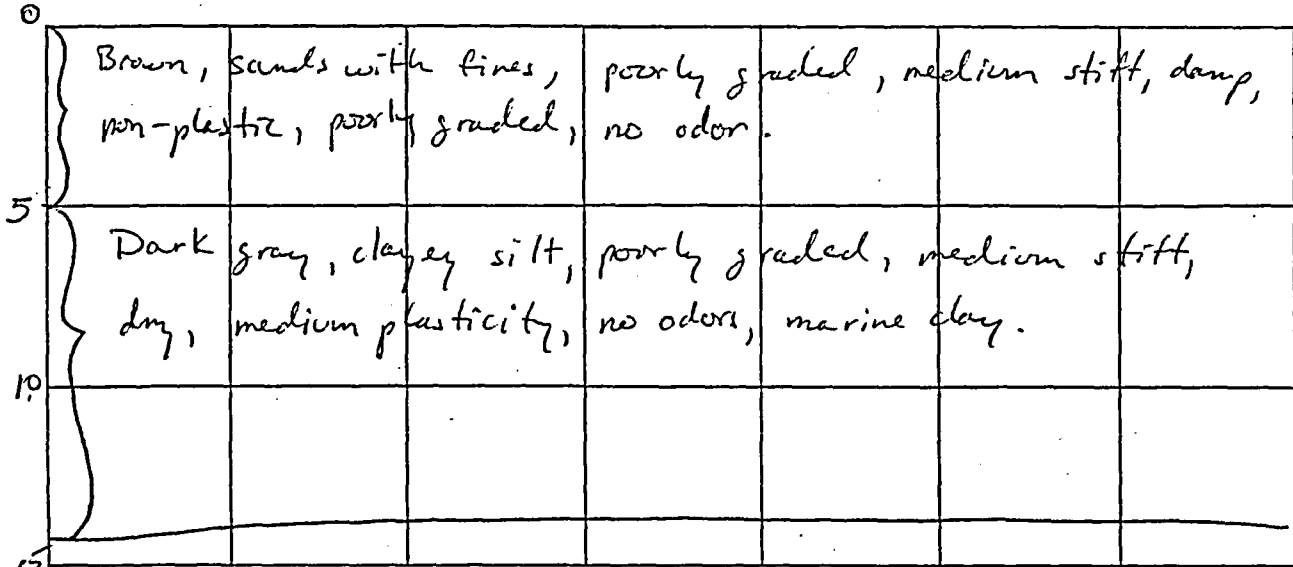 0
Brown, sands with fines, poorly graded, medium stiff, damp,
non-plastic, poorly graded, no odor.
5
Dark gray, clayey silt, poorly graded, medium stiff,
dry, medium plasticity, no odors, marine clay.
10